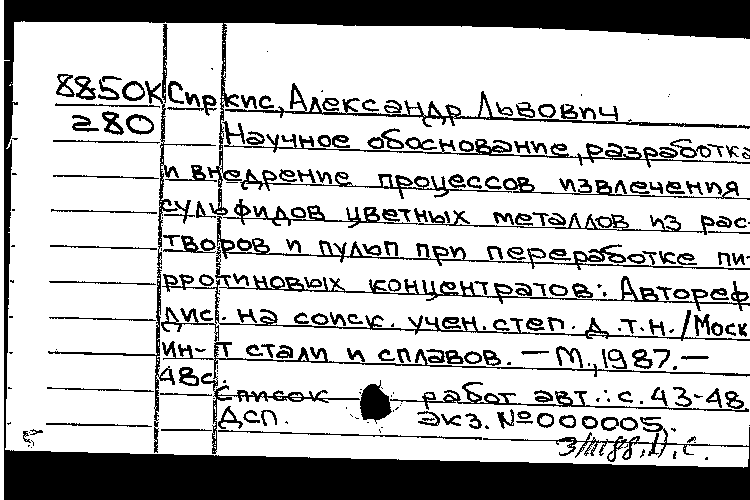 8850К Сиркис, Александр Львович.
280
Научное обоснование, разработка
и внедрение процессов извлечения
сульфидов цветных металлов из рас-
творов и пульп при переработке пи-
рротиновых концентратов: Автореф.
дис. на соиск. учен. степ. д.т.н./Моск
ин-т стали и сплавов. — М., 1987. —
48с.
Список работ авт.: с. 43-48.
Дсп. экз. №000005.